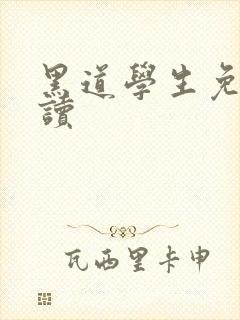 黑道學生免
讀
瓦西里卡申